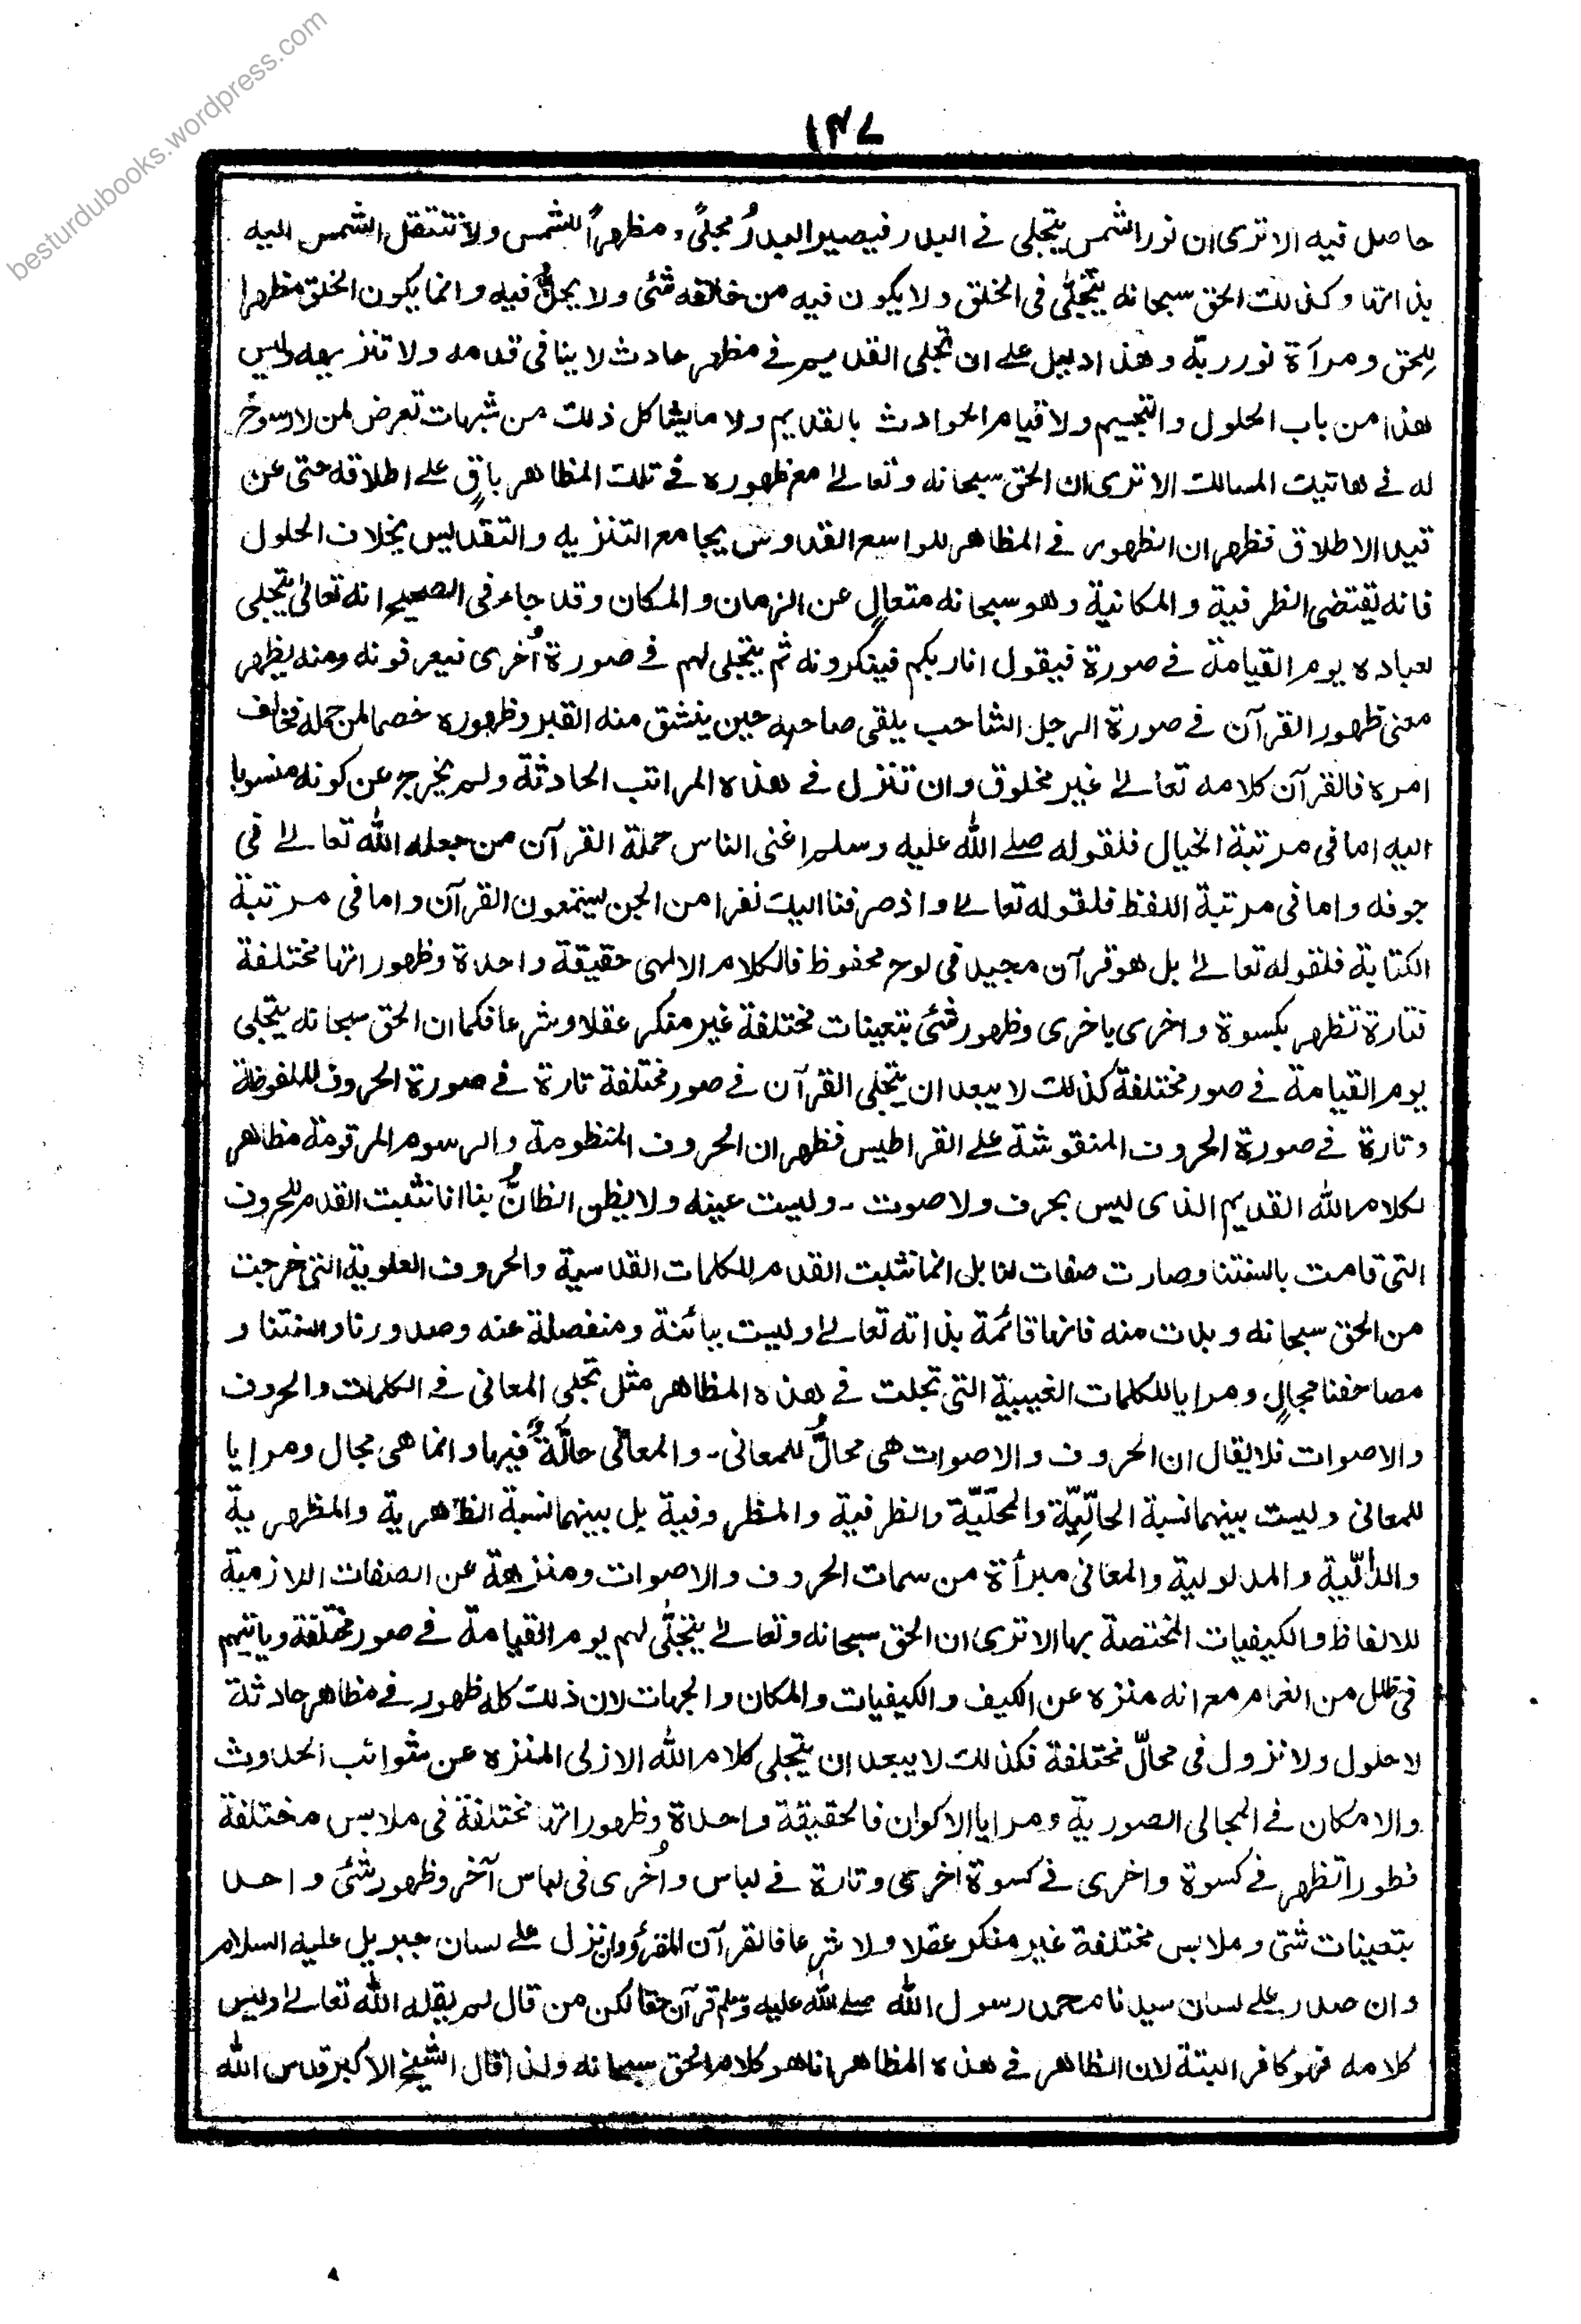 besturdubooks.wordpress.com
۱۴۷
حاصل فيه الا ترى ان نور الشمس يتجلى فى البدر فيصير البدرُ مجلىً ومظهراً للشمس ولا تنتقل الشمس اليه
بذاتها وكذلك الحق سبحانه يتجلّى فى الخلق ولا يكون فيه من خالقه شئى ولا يحلُّ فيه وانما يكون الخلق مظهرا
للحق ومرآة نور ربّه وهذا دليل على ان تجلى القديم فى مظهر حادث لا ينافى قدمه ولا تنزيهه وليس
هذا من باب الحلول والتجسيم ولا قيام الحوادث بالقديم ولا ما يشاكل ذلك من شبهات تعرض لمن لا رسوخ
له فى هاتيك المسالك الا ترى ان الحق سبحانه وتعالى مع ظهوره فى تلك المظاهر باقٍ على اطلاقه حتى عن
قيد الاطلاق فظهر ان الظهور فى المظاهر للواسع القدوس يجامع التنزيه والتقديس بخلاف الحلول
فانه يقتضى الظرفية والمكانية وهو سبحانه متعالٍ عن الزمان والمكان وقد جاء فى الصحيح انه تعالى يتجلى
لعباده يوم القيامة فى صورة فيقول انا ربكم فينكرونه ثم يتجلى لهم فى صورة اُخرى فيعرفونه ومنه يظهر
معنى ظهور القرآن فى صورة الرجل الشاحب يلقى صاحبه حين ينشق منه القبر وظهوره خصما لمن حمله فخالف
امره فالقرآن كلامه تعالى غير مخلوق وان تنزل فى هذه المراتب الحادثة ولم يخرج عن كونه منسوبا
اليه اما فى مرتبة الخيال فلقوله صلى الله عليه وسلم اغنى الناس حملة القرآن من جعله الله تعالى فى
جوفه واما فى مرتبة اللفظ فلقوله تعالى واذ صرفنا اليك نفرا من الجن يستمعون القرآن واما فى مرتبة
الكتابة فلقوله تعالى بل هو قرآن مجيد فى لوح محفوظ فالكلام الالهى حقيقة واحدة وظهوراتها مختلفة
فتارة تظهر بكسوة واخرى باخرى وظهور شئى بتعينات مختلفة غير منكر عقلا وشرعا فكما ان الحق سبحانه يتجلى
يوم القيامة فى صور مختلفة كذلك لا يبعد ان يتجلى القرآن فى صور مختلفة تارة فى صورة الحروف الملفوظة
وتارة فى صورة الحروف المنقوشة على القراطيس فظهر ان الحروف المنظومة والرسوم المرقومة مظاهر
لكلام الله القديم الذى ليس بحرف ولا صوت - وليست عينه ولا يظن الظانُّ بنا انا نثبت القدم للحروف
التى قامت بالسنتنا وصارت صفات لنا بل انما نثبت القدم للكلمات القدسية والحروف العلوية التى خرجت
من الحق سبحانه وبدت منه فانها قائمة بذاته تعالى وليست ببائنة ومنفصلة عنه وصدورنا والسنتنا و
مصاحفنا مجالٍ ومرايا للكلمات الغيبية التى تجلت فى هذه المظاهر مثل تجلى المعانى فى الكلمات والحروف
والاصوات فلا يقال ان الحروف والاصوات هى محالُّ للمعانى - والمعانى حالَّةٌ فيها وانما هى مجال ومرايا
للمعانى وليست بينهما نسبة الحالّيّة والمحلّيّة والظرفية والمظروفية بل بينهما نسبة الظاهرية والمظهرية
والدالّية والمدلولية والمعانى مبرأة من سمات الحروف والاصوات ومنزهة عن الصفات اللازمية
للالفاظ والكيفيات المختصة بها الا ترى ان الحق سبحانه وتعالى يتجلّى لهم يوم القيامة فى صور مختلفة وياتيهم
فى ظلل من الغمام مع انه منزه عن الكيف والكيفيات والمكان والجهات لان ذلك كله ظهور فى مظاهر حادثة
لا حلول ولا نزول فى محالّ مختلفة فكذلك لا يبعد ان يتجلى كلام الله الازلى المنزه عن شوائب الحدوث
والامكان فى المجالى الصورية ومرايا الاكوان فالحقيقة واحدة وظهوراتها مختلفة فى ملابس مختلفة
فطورا تظهر فى كسوة واخرى فى كسوة اخرى وتارة فى لباس واُخرى فى لباس آخر وظهور شئى واحد
بتعينات شتى وملابس مختلفة غير منكر عقلا ولا شرعا فالقرآن المقرؤ وان نزل على لسان جبريل عليه السلام
وان صدر على لسان سيدنا محمد رسول الله صلى الله عليه وسلم قرآن حقا لكن من قال لم يقله الله تعالى وليس
كلامه فهو كافر البتة لان الظاهر فى هذه المظاهر انما هو كلام الحق سبحانه ولذا قال الشيخ الاكبر قدس الله